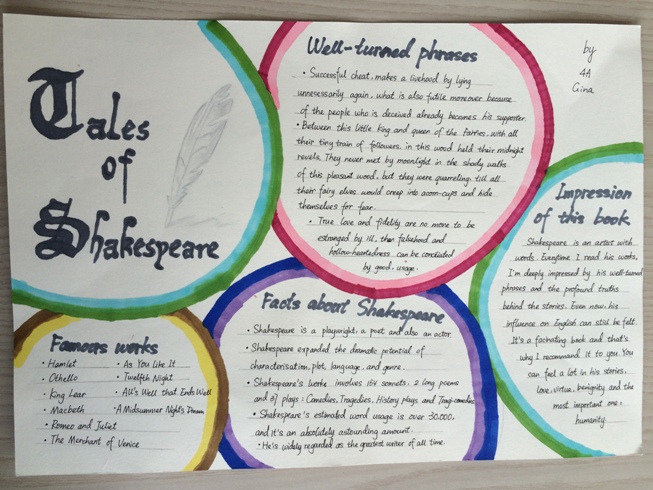 Tales
of
Shakespeare
Well-turned phrases
• Successful cheat, makes a livehood by lying
unnecessorily again, what is also futile moreover because
of the people who is deceived already becomes his supporter.
• Between this little king and queen of the fairies, with all
their tiny train of followers, in this wood held their midnight
revels. They never met by moonlight in the shady walks
of this pleasant wood, but they were quarreling, till all
their fairy elves would creep into acorn-cups and hide
themselves for fear.
• True love and fidelity are no more to be
estranged by ill, then falsehood and
hollow-heartedness can be conciliated
by good usage.
by
4A
Gina
Impression
of this book
Shakespeare is an artist with
words. Everytime I read his works,
I'm deeply impressed by his well-turned
phrases and the profound truths
behind the stories. Even now, his
influence on English can still be felt.
It's a facinating book and that's
why I recommand it to you. You
can feel a lot in his stories,
love, virtue, benignity and the
most important one:
humanity.
Facts about Shakespeare
• Shakespeare is a playwright, a poet and also an actor.
• Shakespeare expanded the dramatic potential of
characterisation, plot, language, and genre.
• Shakespeare's works involves 154 sonnets, 2 long poems
and 37 plays: Comedies, Tragedies, History plays and Tragi-comedies
• Shakespeare's estimated word usage is over 30,000,
and it's an absolutely astounding amount.
• He is widely regarded as the greatest writer of all time.
Famous works
• Hamlet • As You Like It
• Othello • Twelfth Night
• King Lear • All's Well that Ends Well
• Macbeth • A Midsummer Night's Dream
• Romeo and Juliet
• The Merchant of Venice